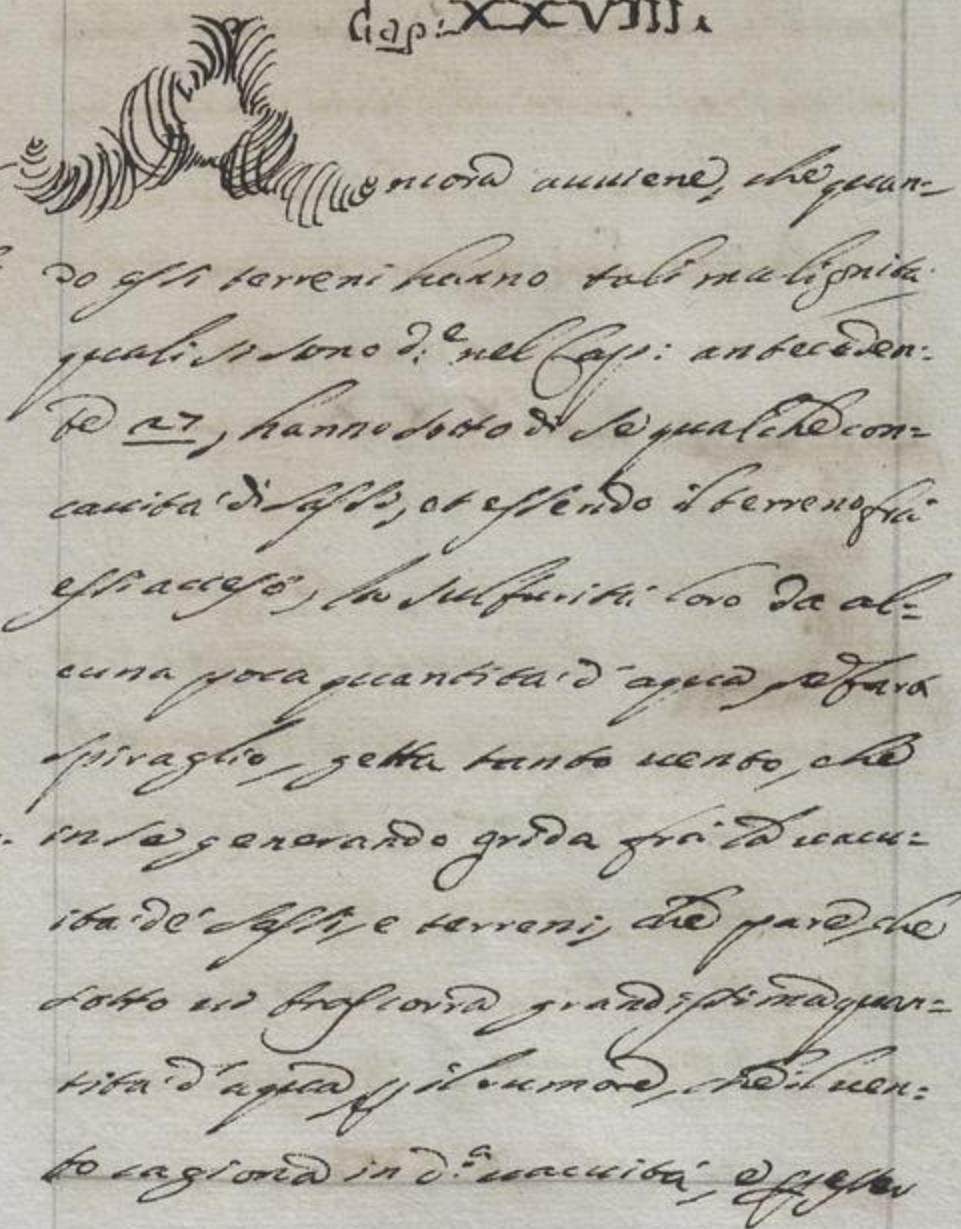 Cap: XXVIII.
Ancora auuiene, che quan=
do essi terreni hanno tali malignità
quali si sono d.e nel Cap: anteceden=
te 27, hanno sotto di se qualche con=
cauità di sassi, et essendo il terreno frà
essi acceso, la sulfurità loro da al=
cuna poca quantità d'aqua, se farà
spiraglio, getta tanto uento, che
in se generando grida frà la uacu=
ità de' sassi, e terreni, che pare, che
sotto ui trascorra grandissima quan=
tità d'aqua, il rumore, che il uen=
to cagiona in d.a uacuità, e